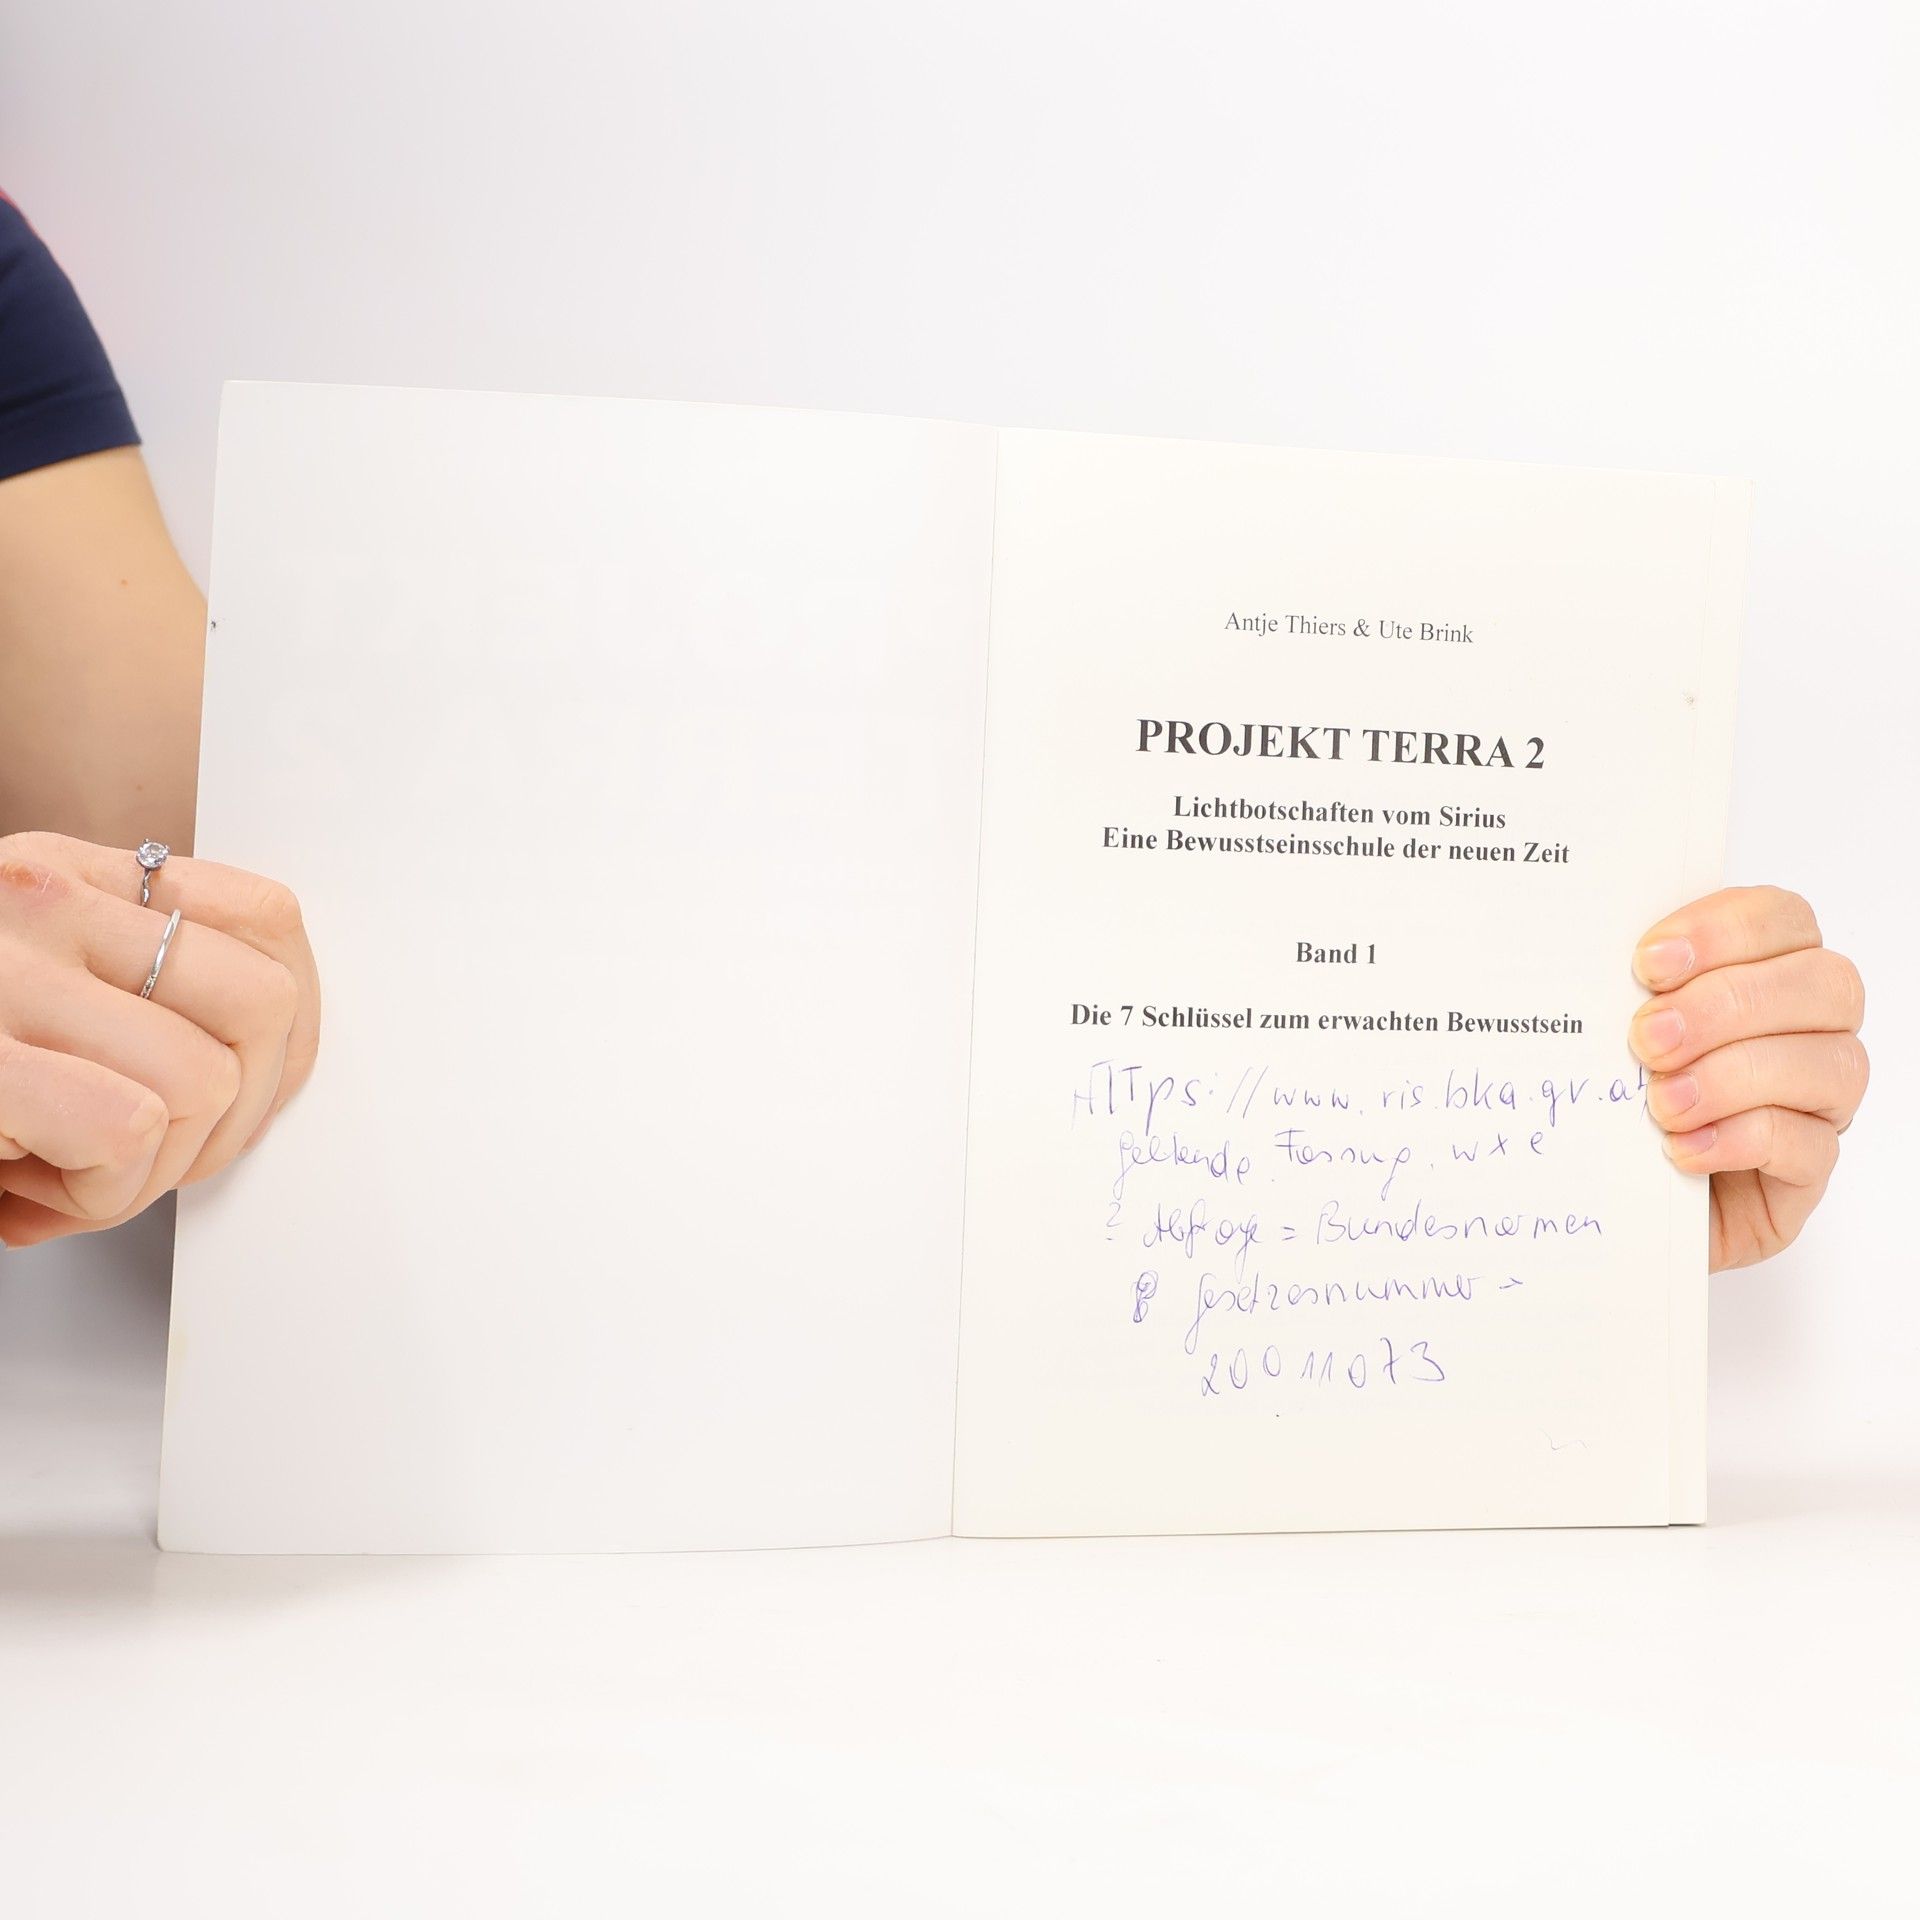 Antje Thiers & Ute Brink
PROJEKT TERRA 2
Lichtbotschaften vom Sirius
Eine Bewusstseinsschule der neuen Zeit
Band 1
Die 7 Schlüssel zum erwachten Bewusstsein
HTTps://www.ris.bka.gv.at/
geltende Fassung. wxe
? Abfrage = Bundesnormen
Gesetzesnummer =
20011073